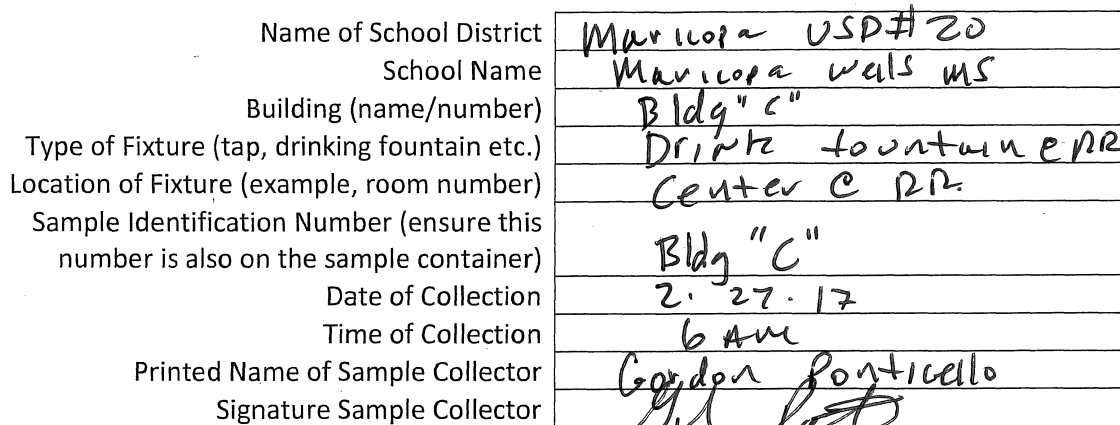 Name of School District Maricopa USD#20
School Name Maricopa Wells MS
Building (name/number) Bldg "C"
Type of Fixture (tap, drinking fountain etc.) Drink fountain @ RR
Location of Fixture (example, room number) Center @ RR.
Sample Identification Number (ensure this
number is also on the sample container) Bldg "C"
Date of Collection 2. 27. 17
Time of Collection 6 AM
Printed Name of Sample Collector Gordon Ponticello
Signature Sample Collector